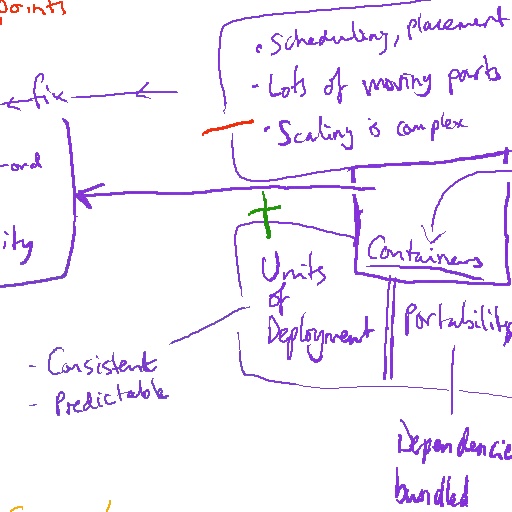 points
• Scheduling, placement
- Lots of moving parts
• Scaling is complex
fix
ord
ity
Containers
Units
of
Deployment
Portability
- Consistent
- Predictable
Dependencie
bundled